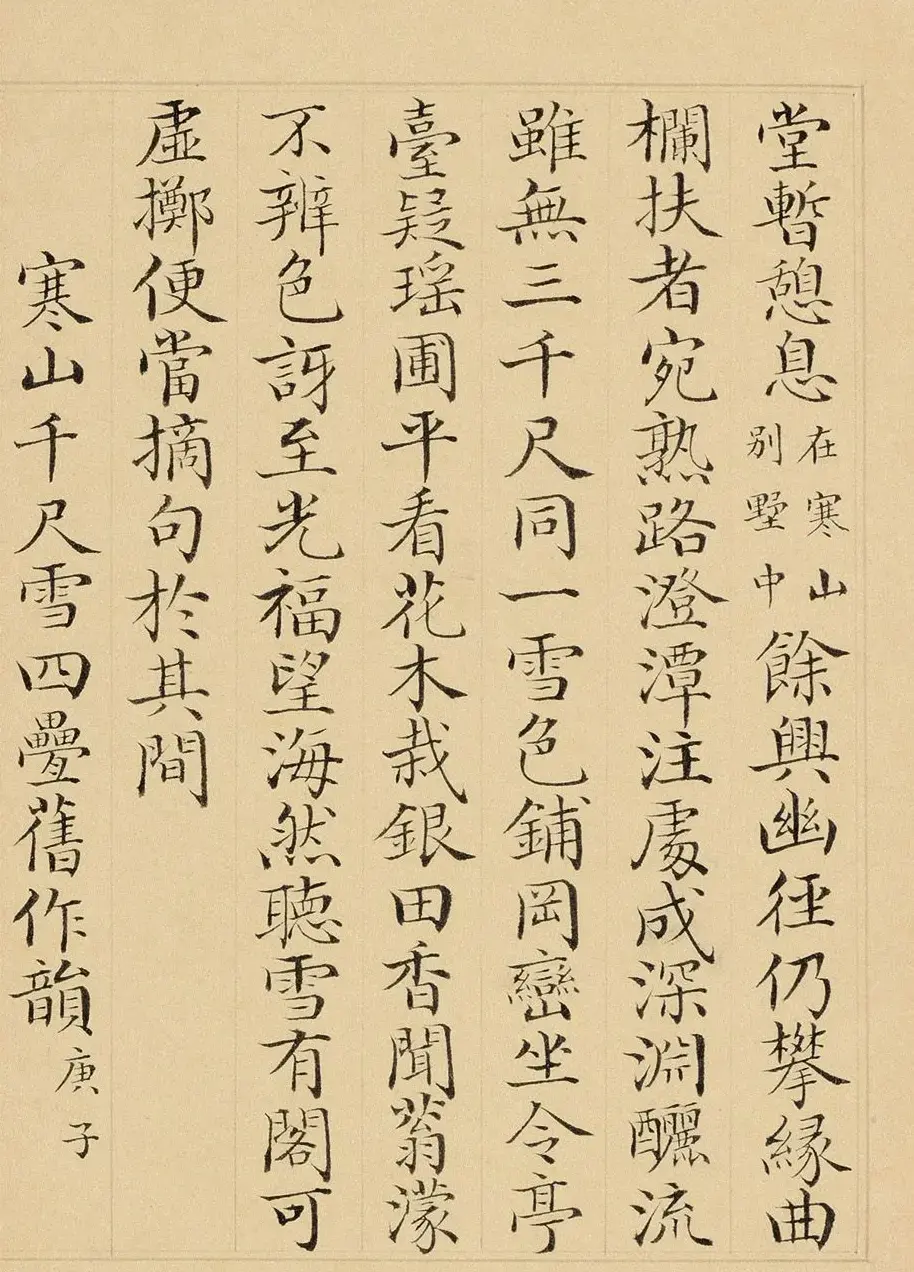 堂暫憩息在寒山別墅中餘興幽徑仍攀緣曲
欄扶者宛熟路澄潭注處成深淵釃流
雖無三千尺同一雪色鋪岡巒坐令亭
臺疑瑶圃平看花木栽銀田香聞蓊濛
不辨色訝至光福望海然聴雪有閣可
虛擲便當摘句於其間
寒山千尺雪四疊舊作韻庚子